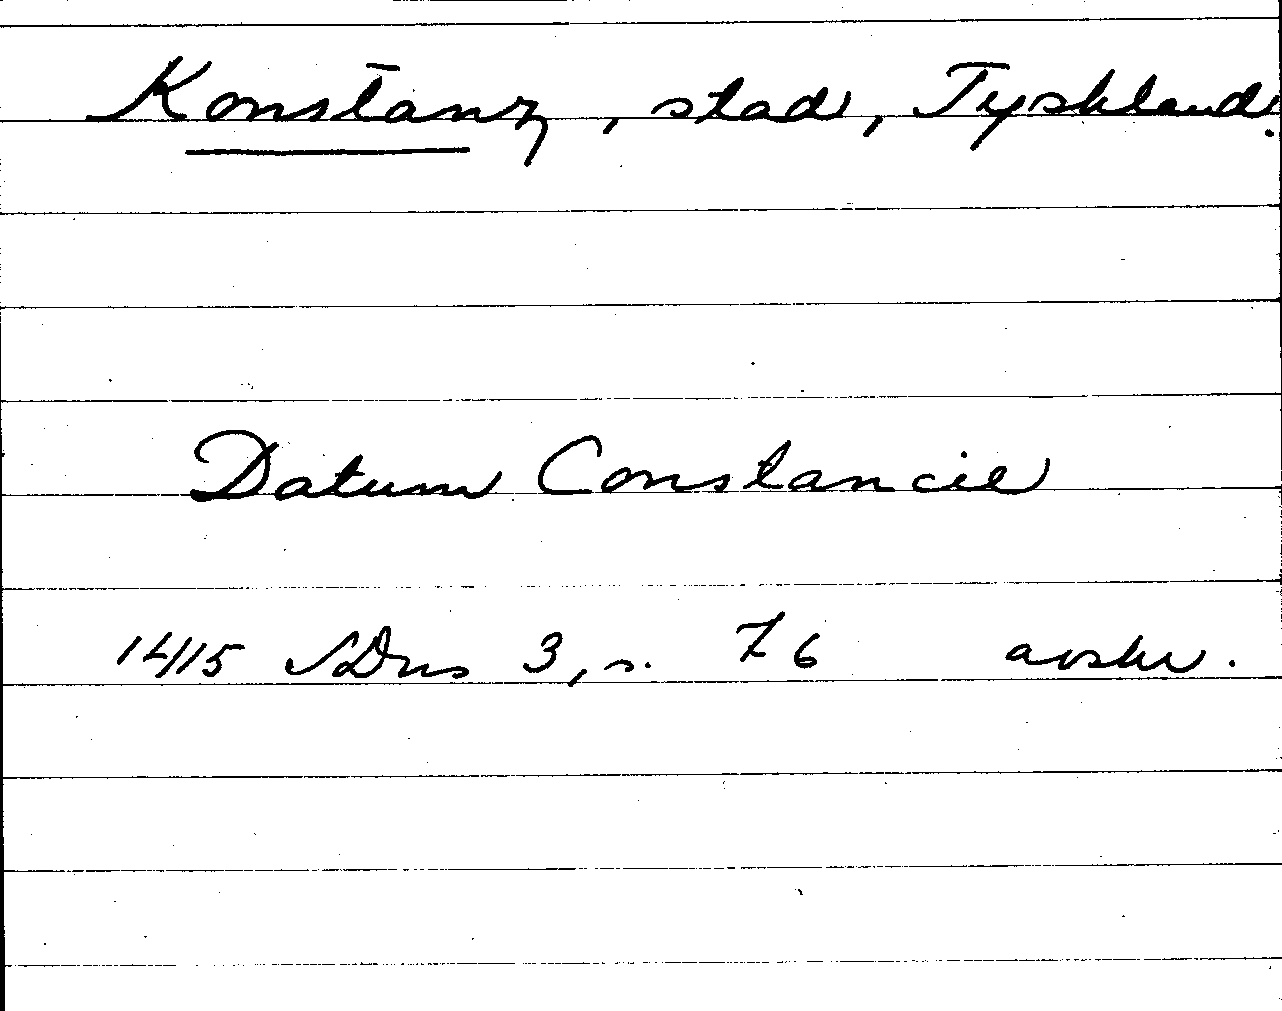 Konstanz, stad, Tyskland.
Datum Constancie
1415 SDns 3, s. 76 avskr.